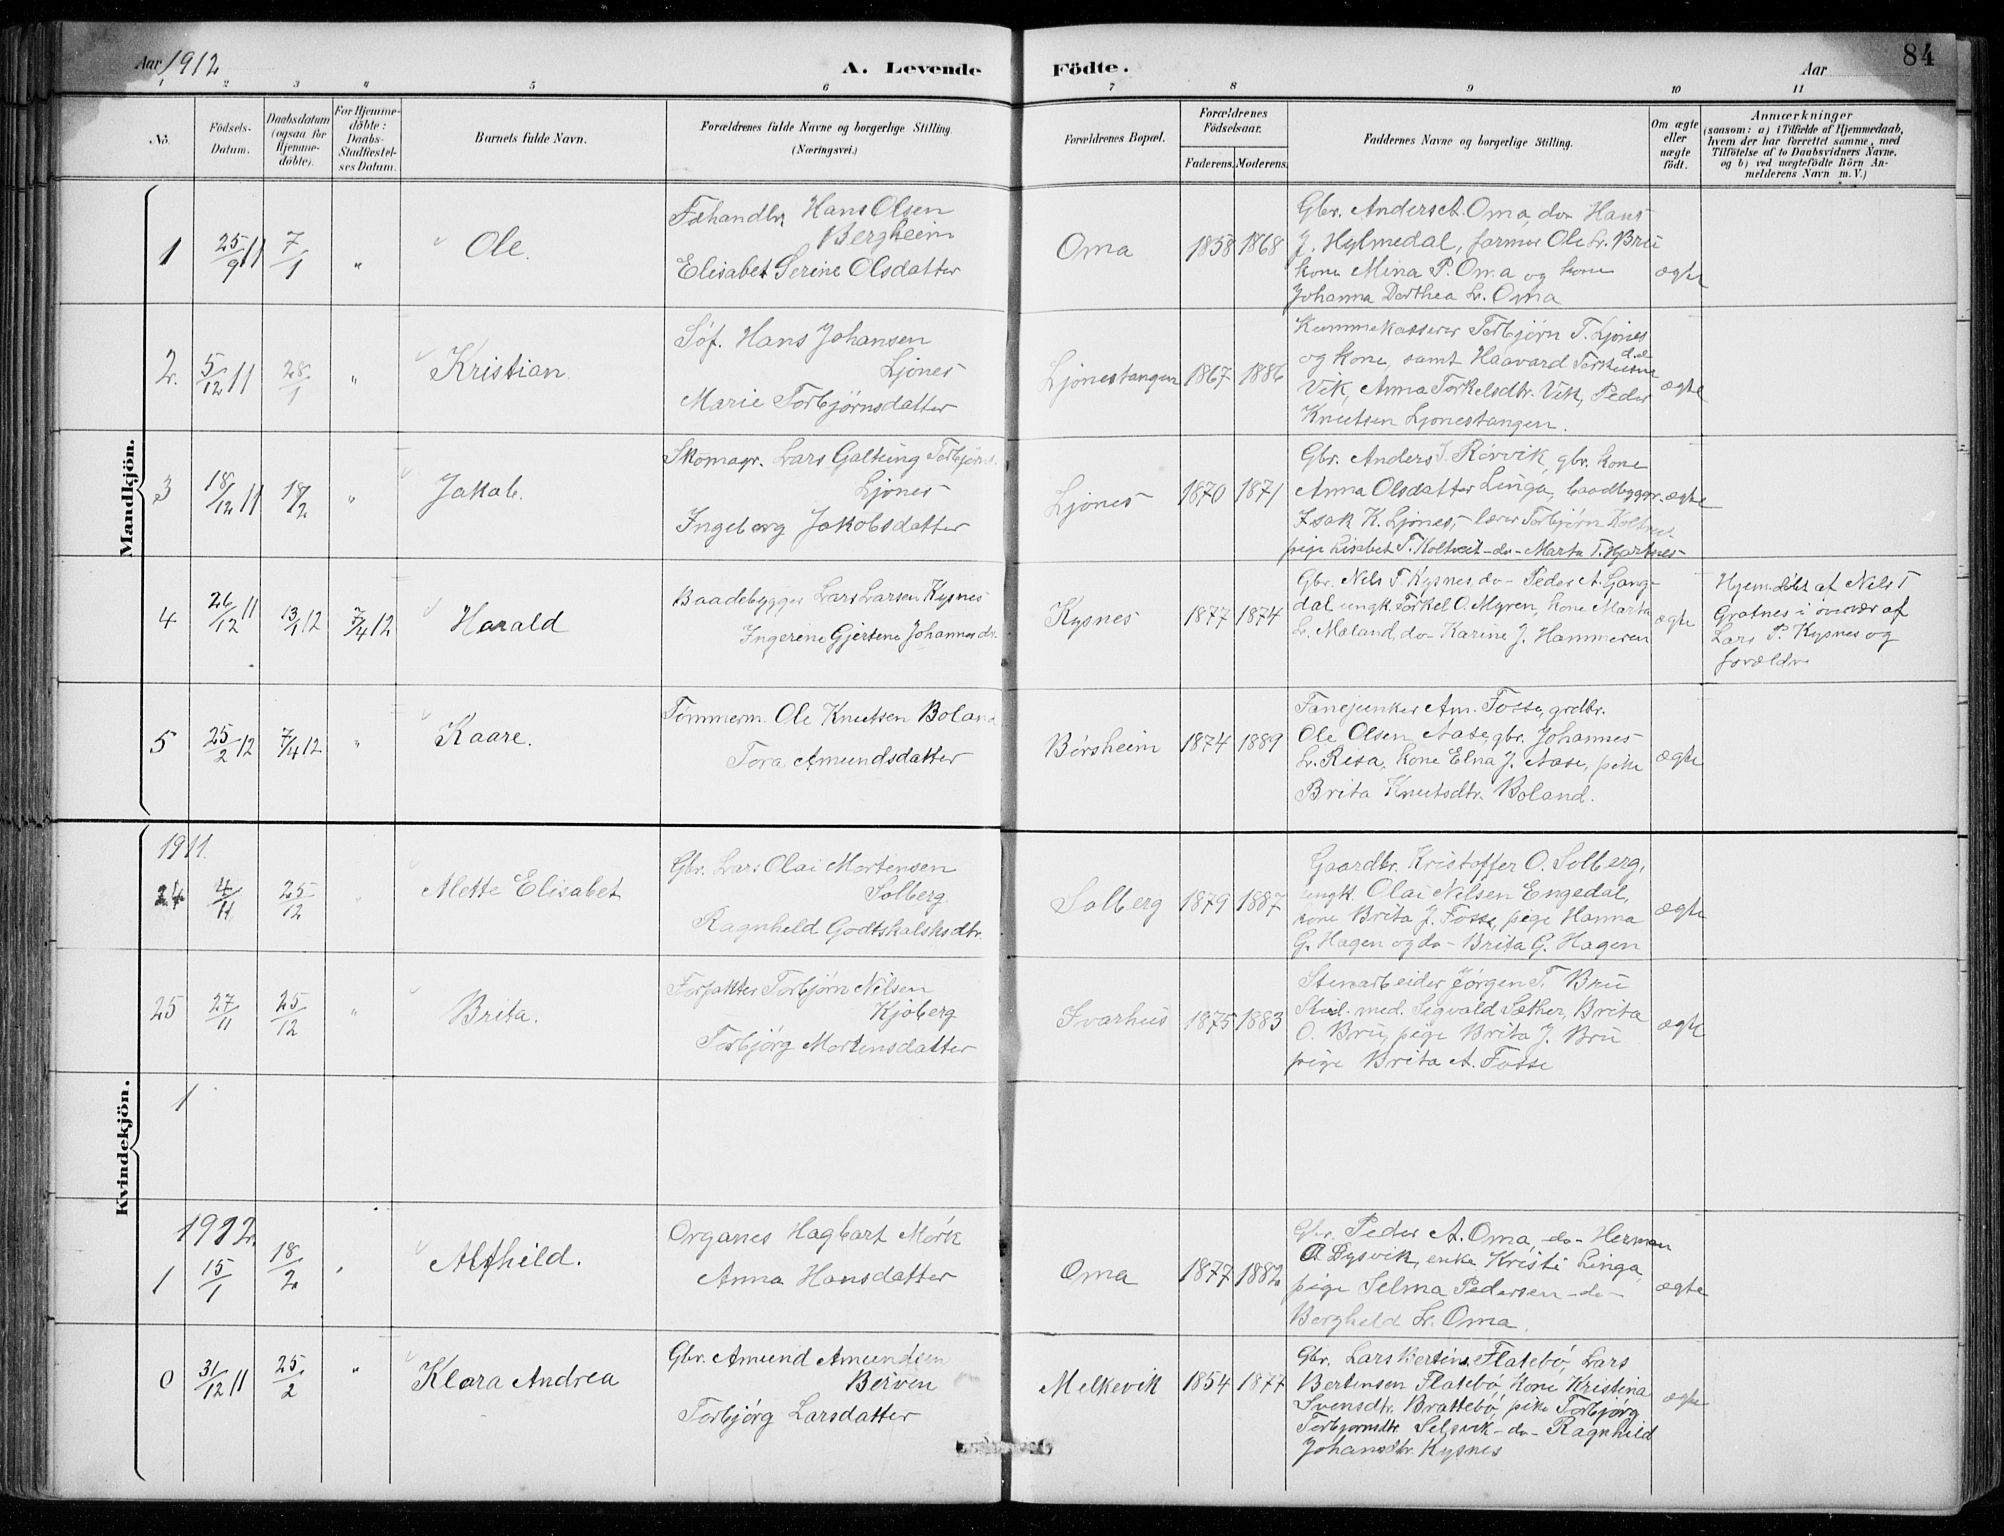 Aar 1912
A. Levende Födte.
Aar
84
1 2 3 4 5 6 7 8 9 10 11
No.
Födsels-Datum.
Daabsdatum (ogsaa for Hjemme-döbte).
For Hjemme-döbte: Daabs-Stadfæstel-ses Datum.
Barnets fulde Navn.
Forældrenes fulde Navne og borgerlige Stilling. (Næringsvei.)
Forældrenes Bopæl.
Forældrenes Födselsaar.
Faderens. Moderens.
Faddernes Navne og borgerlige Stilling.
Om ægte eller uægte födt.
Anmærkninger
(saasom: a) i Tilfælde af Hjemmedaab,
hvem der har forrettet samme, med
Tilföielse af to Daabsvidners Navne,
og b) ved uægtefödte Börn An-
melderens Navn m. V.)
Mandkjön.
1 25/9 11 7/1 " Ole.
Hans Olsen
Bergheim
Elisabet Serine Olsdatter
Oma 1858 1868
Gbr. Anders A. Oma, do- Hans
J. Hylmedal, former Ole L. Bru
kone Mina P. Oma og kone
Johanna Dorthea L. Oma
ægte
2. 5/12 11 28/1 " Kristian.
Søf. Hans Johansen
Ljones
Marie Torbjørnsdatter
Ljonestangen 1867 1886
Torbjørn T. Ljones
og kone, samt Haavard
Vik, Anna Torkelsdtr. Vik, Peder
Knutsen Ljonestangen.
ægte
3 18/12 11 18/2 " Jakob.
Skomagr. Lars Galtung Torbjörns.
Ljones
Ingeborg Jakobsdatter
Ljones 1870 1871
Gbr. Anders S. Rørvik, gbr. kone
Anna Olsdatter Linga, baadbyggr.
Isak K. Ljones, lærer Torbjørn
pige Lisabet T. Koltveit -do- Marta T.
ægte
4 26/12 11 13/1 12 7/4 12 Harald
Baadebygger Lars Larsen Kysnes
Ingerene Gjertene Johannesdr.
Kysnes 1877 1874
Gbr. Nils T. Kysnes, do- Peder A. Gang-
dal, ungk Torkel O. Myren, kone Marta
L. Maland, do- Karine J. Hammeren
ægte
Hjemdöbt af Nils T
Gratnes i overvær af
Lars P. Kysnes og
forældre
5 25/2 12 7/4 12 " Kaare.
Tommerm. Ole Knutsen Boland
Tora Amundsdatter
Børsheim 1874 1889
Fanejunker Am. Fosse, grdbr.
Ole Olsen Aase, gbr. Johannes
L. Risa, kone Elna J. Aase, pike
Brita Knutsdtr. Boland.
ægte
Kvindekjön.
1911.
24 4/11 25/12 " Mette Elisabet
Gbr. Lars Olai Mortensen
Solberg
Ragnheld Godtskalksdtr.
Solberg 1879 1887
Gaardbr. Kristoffer O. Solberg,
ungk. Olai Nilsen Engedal,
kone Brita J. Fosse, pige Hanna
G. Hagen og do- Brita G. Hagen
ægte
25 27/11 25/12 " Brita.
Forpakter Torbjörn Nilsen
Kjoberg
Torbjörg Mortensdatter
Svarhus 1875 1883
Stenarbeider Jörgen T. Bru
med. Sigvald Sæther, Brita
O. Bru, pige Brita J. Bru
pige Brita A. Fosse
ægte
1
1912.
1 15/1 18/2 " Alfhild.
Hagbart Mørk
Anna Hansdatter
Oma 1877 1882
Gbr. Peder A. Oma, -do- Herman
Dysvik, enke Kristi Linga,
pige Selma Pedersen -do-
Bergheld L. Oma.
ægte
0 31/12 11 25/2 " Klara Andrea
Gbr. Amund Amundsen
Berven
Torbjörg Larsdatter
Melkevik 1854 1877
Gbr. Lars Flatebö, Lars
Bertensen Flatebö, kone Kristina
Svensdtr. Brattebö, pike Torbjörg
Torbjornsdtr Selsvik -do- Ragnhild
Johansdtr. Kysnes
ægte